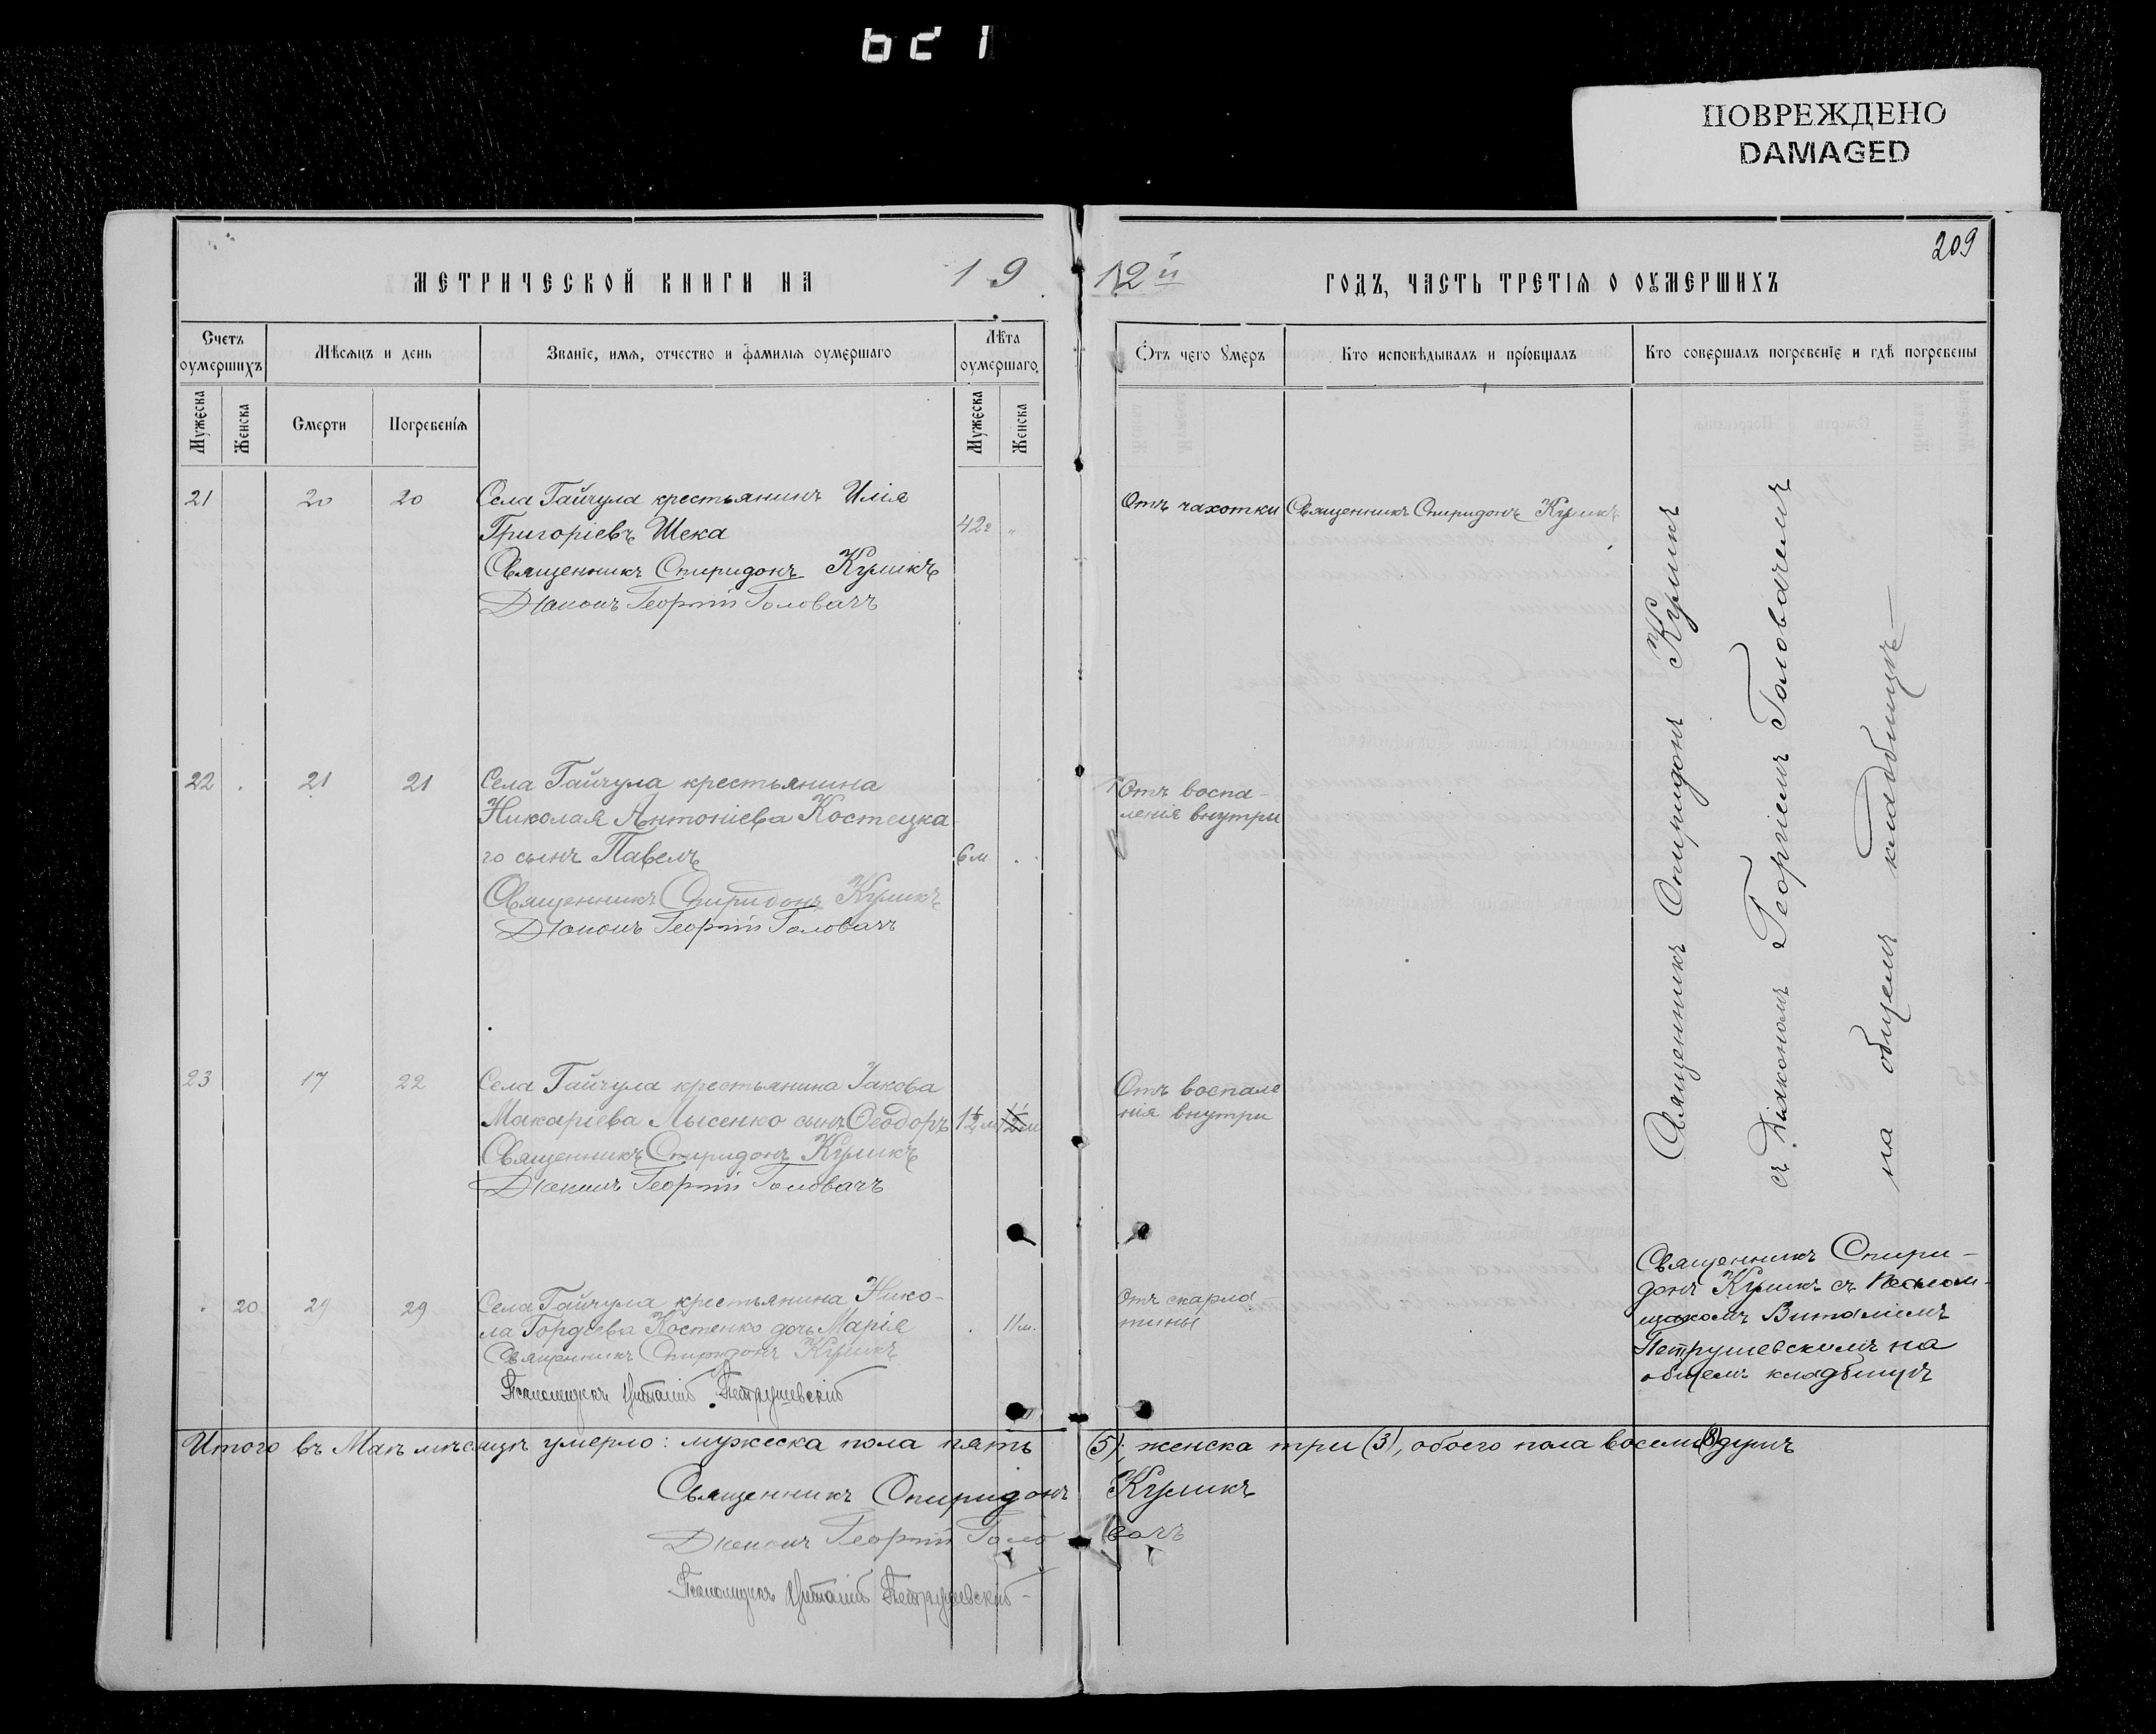 ПОВРЕЖДЕНО
DAMAGED
209
МЕТРИЧЕСКОЙ КНИГИ НА 19
12й ГОДЪ, ЧАСТЬ ТРЕТІѦ О ОУМЕРШИХЪ
Счетъ оумершихъ
Мѣсѧцъ и день
Званіе, имѧ, отчество и фамиліѧ оумершаго
Лѣта оумершаго
Мужеска
Женска
Смерти
Погребеніѧ
Мужеска
Женска
Отъ чего умеръ
Кто исповѣдывалъ и пріобщалъ
Кто совершалъ погребеніе и гдѣ погребены
21 20 20 Села Гайчула крестьянинъ Илія
Григоріевъ Шека 42г
Священникъ Спиридонъ Куликъ
Діаконъ Георгій Головачъ
Отъ чахотки Священникъ Спиридонъ Куликъ
22 21 21 Села Гайчула крестьянина
Николая Антоніева Костецка
го сынъ Павелъ 6м
Священникъ Спиридонъ Куликъ
Діаконъ Георгій Головачъ
Отъ воспа-
ленія внутри
23 17 22 Села Гайчула крестьянина Іакова
Макаріева Лысенко сынъ Ѳеодоръ 1½м
Священникъ Спиридонъ Куликъ
Діаконъ Георгій Головачъ
Отъ воспале
нія внутри
Священникъ Спиридонъ Куликъ
съ Діакономъ Георгіемъ Головачемъ
на общемъ кладбищѣ—
20 29 29 Села Гайчула крестьянина Нико-
ла Гордѣева Костенко дочь Марія 11м.
Священникъ Спиридонъ Куликъ
Псаломщикъ Виталій Петрушевскій
Отъ скарла-
тины
Священникъ Спири-
донъ Куликъ съ Псалом-
щикомъ Виталіемъ
Петрушевскимъ на
общемъ кладбищѣ
Итого въ Маѣ мѣсяцѣ умерло: мужеска пола пять (5); женска три (3), обоего пола восемь (8) душъ
Священникъ Спиридонъ Куликъ
Діаконъ Георгій Головачъ
Псаломщикъ Виталій Петрушевскій-